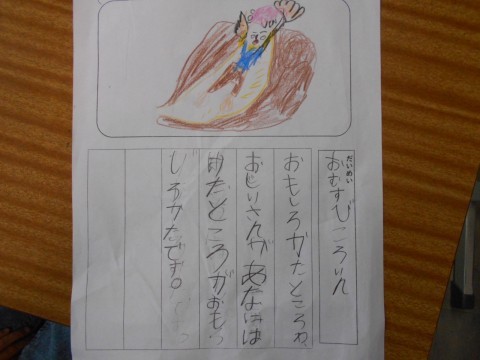 だいめい
おむすびころいん
おもしろかたところわ
おじいさんがあなには
たところがおもっ
しろかたです。